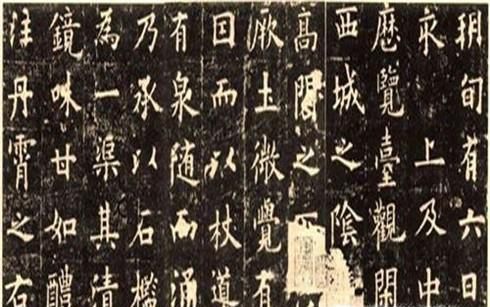 朔旬有六日
亥上及中
歷覽臺觀閑
西城之陰
高閣之
厥土微覺有
因而以杖導
有泉隨而涌
乃承以石檻
為一渠其清
鏡味甘如醴
注丹霄之右